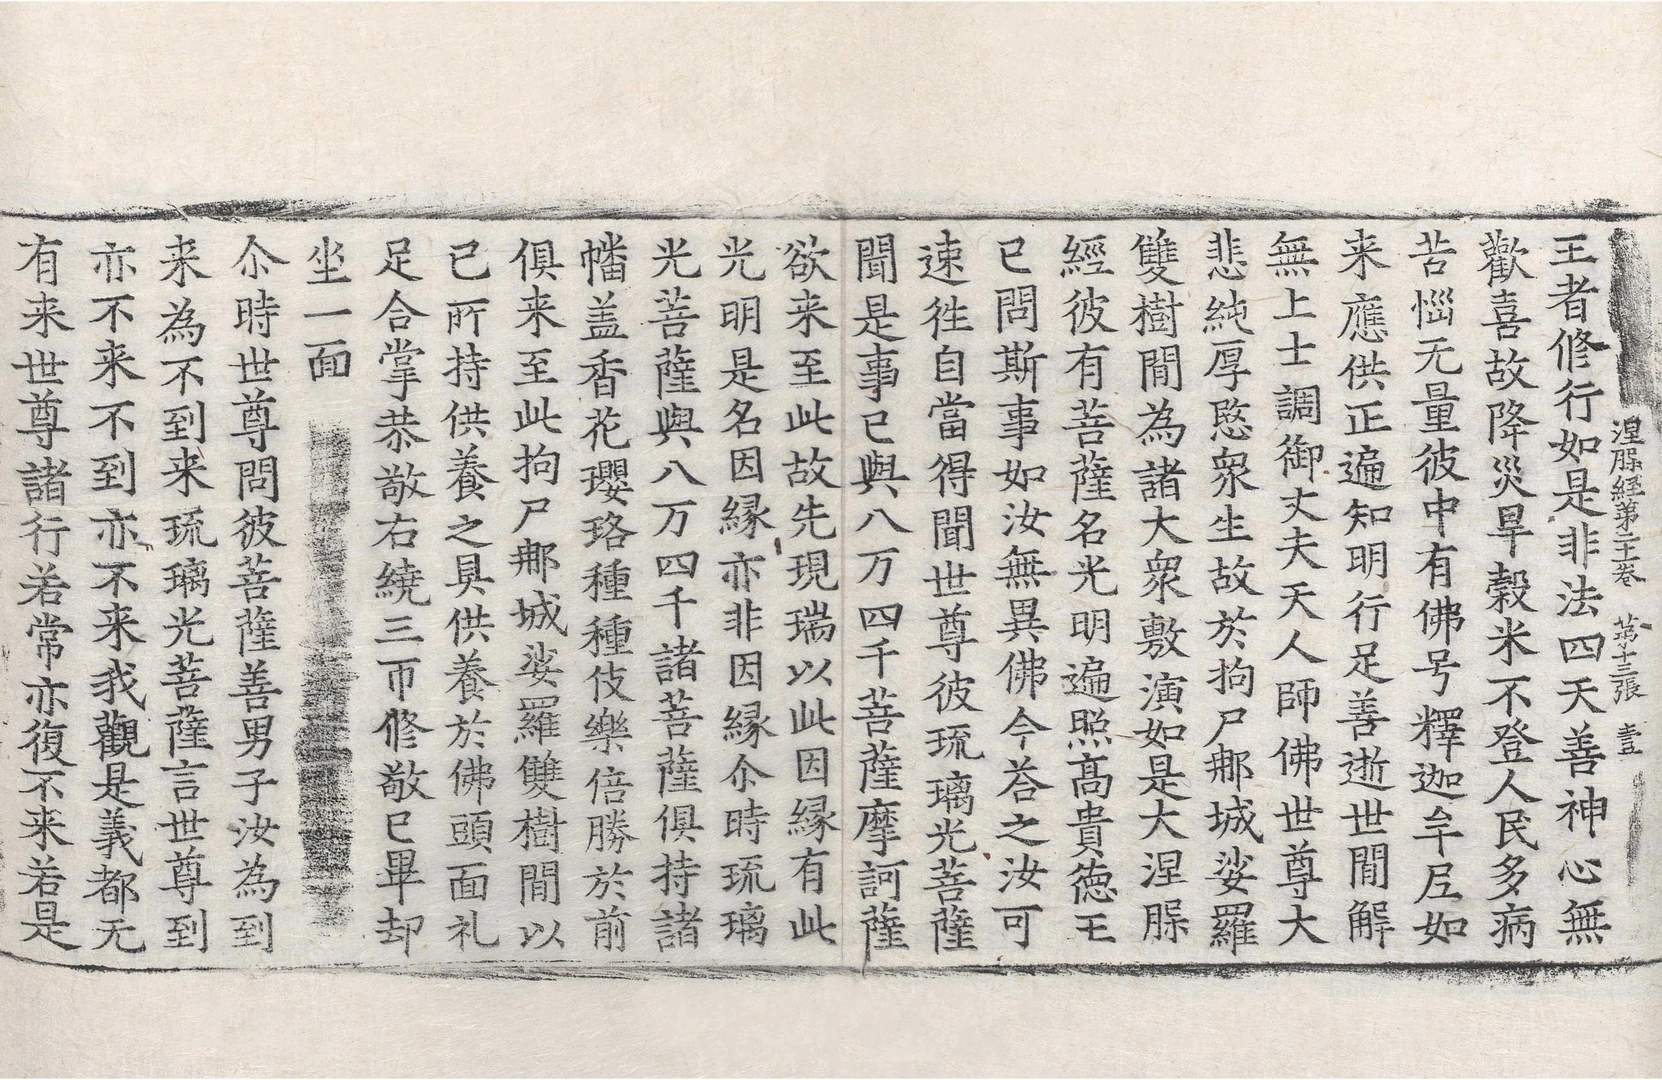 涅槃経第二十一卷 第十三張 壹
王者修行如是非法四天善神心無
歡喜故降災旱穀米不登人民多病
苦惱无量彼中有佛号釋迦牟尼如
来應供正遍知明行足善逝世間解
無上士調御丈夫天人師佛世尊大
悲純厚愍衆生故於拘尸那城娑羅
雙樹間為諸大衆敷演如是大涅槃
經彼有菩薩名光明遍照高貴德王
已問斯事如汝無異佛今荅之汝可
速往自當得聞世尊彼琉璃光菩薩
聞是事已與八万四千菩薩摩訶薩
欲来至此故先現瑞以此因縁有此
光明是名因縁亦非因縁尒時琉璃
光菩薩與八万四千諸菩薩俱持諸
幡盖香花瓔珞種種伎樂倍勝於前
俱来至此拘尸那城娑羅雙樹間以
已所持供養之具供養於佛頭面礼
足合掌恭敬右繞三帀修敬已畢却
坐一面
尒時世尊問彼菩薩善男子汝為到
来為不到来琉璃光菩薩言世尊到
亦不来不到亦不来我觀是義都无
有来世尊諸行若常亦復不来若是